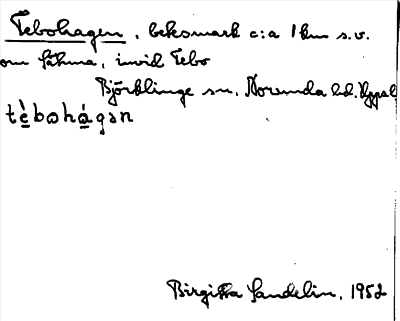 Tebohagen, beksmark c:a 1 km s.v.
om Påkma, invid Tebo
Björklinge sn. Norunda hd. Uppsal
tèbωhágən
Birgitta Sandelin, 1952